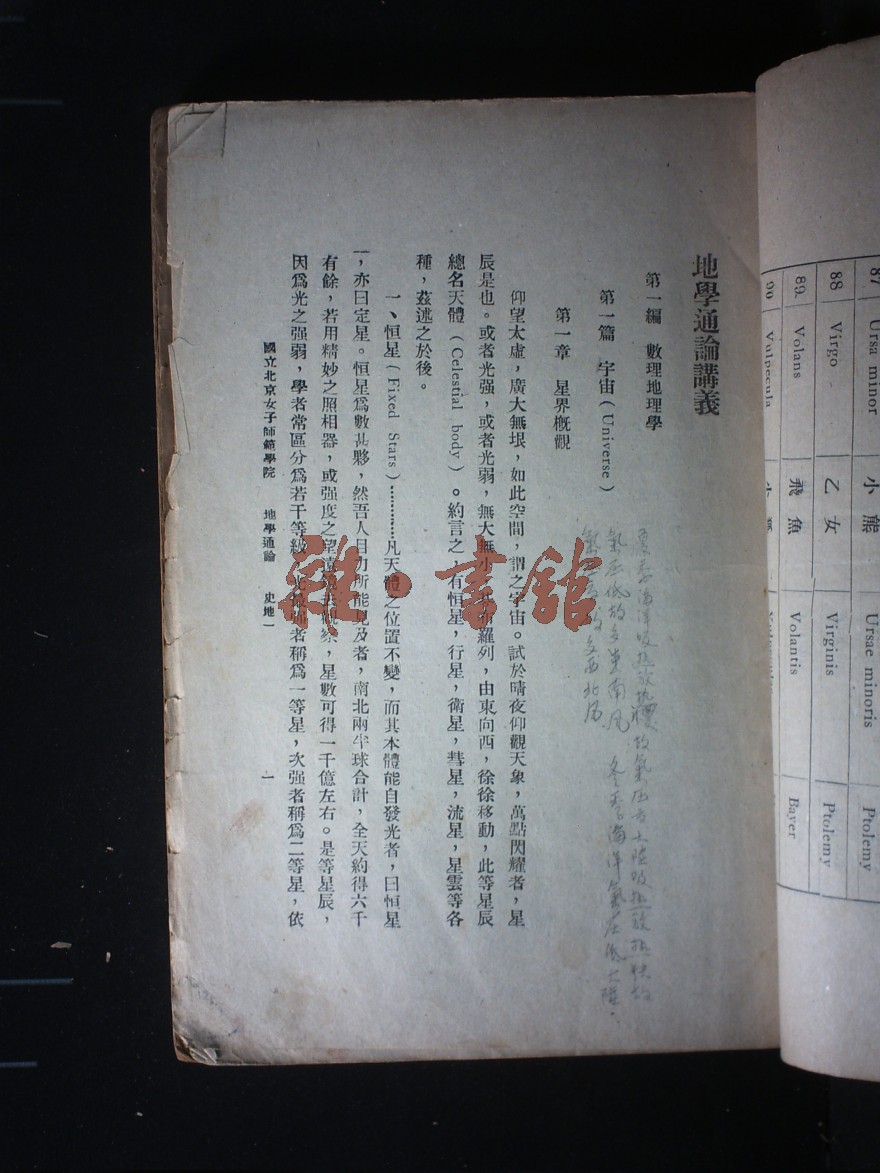 地學通論講義
第一編　數理地理學
第一篇　宇宙(Universe)
第一章　星界概觀
仰望太虛，廣大無垠，如此空間，謂之宇宙。試於晴夜仰觀天象，萬點閃耀者，星
辰是也。或者光强，或者光弱，無大無小，羅列，由東向西，徐徐移動，此等星辰
總名天體(Celestial body)。約言之，有恒星，行星，衛星，彗星，流星，星雲等各
種，茲述之於後。
一、恒星(Fixed Stars)…………凡天體之位置不變，而其本體能自發光者，曰恒星
，亦曰定星。恒星爲數甚夥，然吾人目力所能見及者，南北兩半球合計，全天約得六千
有餘，若用精妙之照相器，或强度之望遠，星數可得一千億左右。是等星辰，
因爲光之强弱，學者常區分爲若干等級，光最强者稱爲一等星，次强者稱爲二等星，依
國立北京女子師範學院　地學通論　史地一　一
雜·書館
夏季海洋吸熱放熱慢故氣压高大陸吸熱放熱快故
氣压低故多東南風　冬季海洋氣压低大陸
多西北風
87 Ursa minor 小熊 Ursae minoris Ptolemy
88 Virgo 乙女 Virginis Ptolemy
89. Volans 飛魚 Volantis Bayer
90 Vulpecula 小